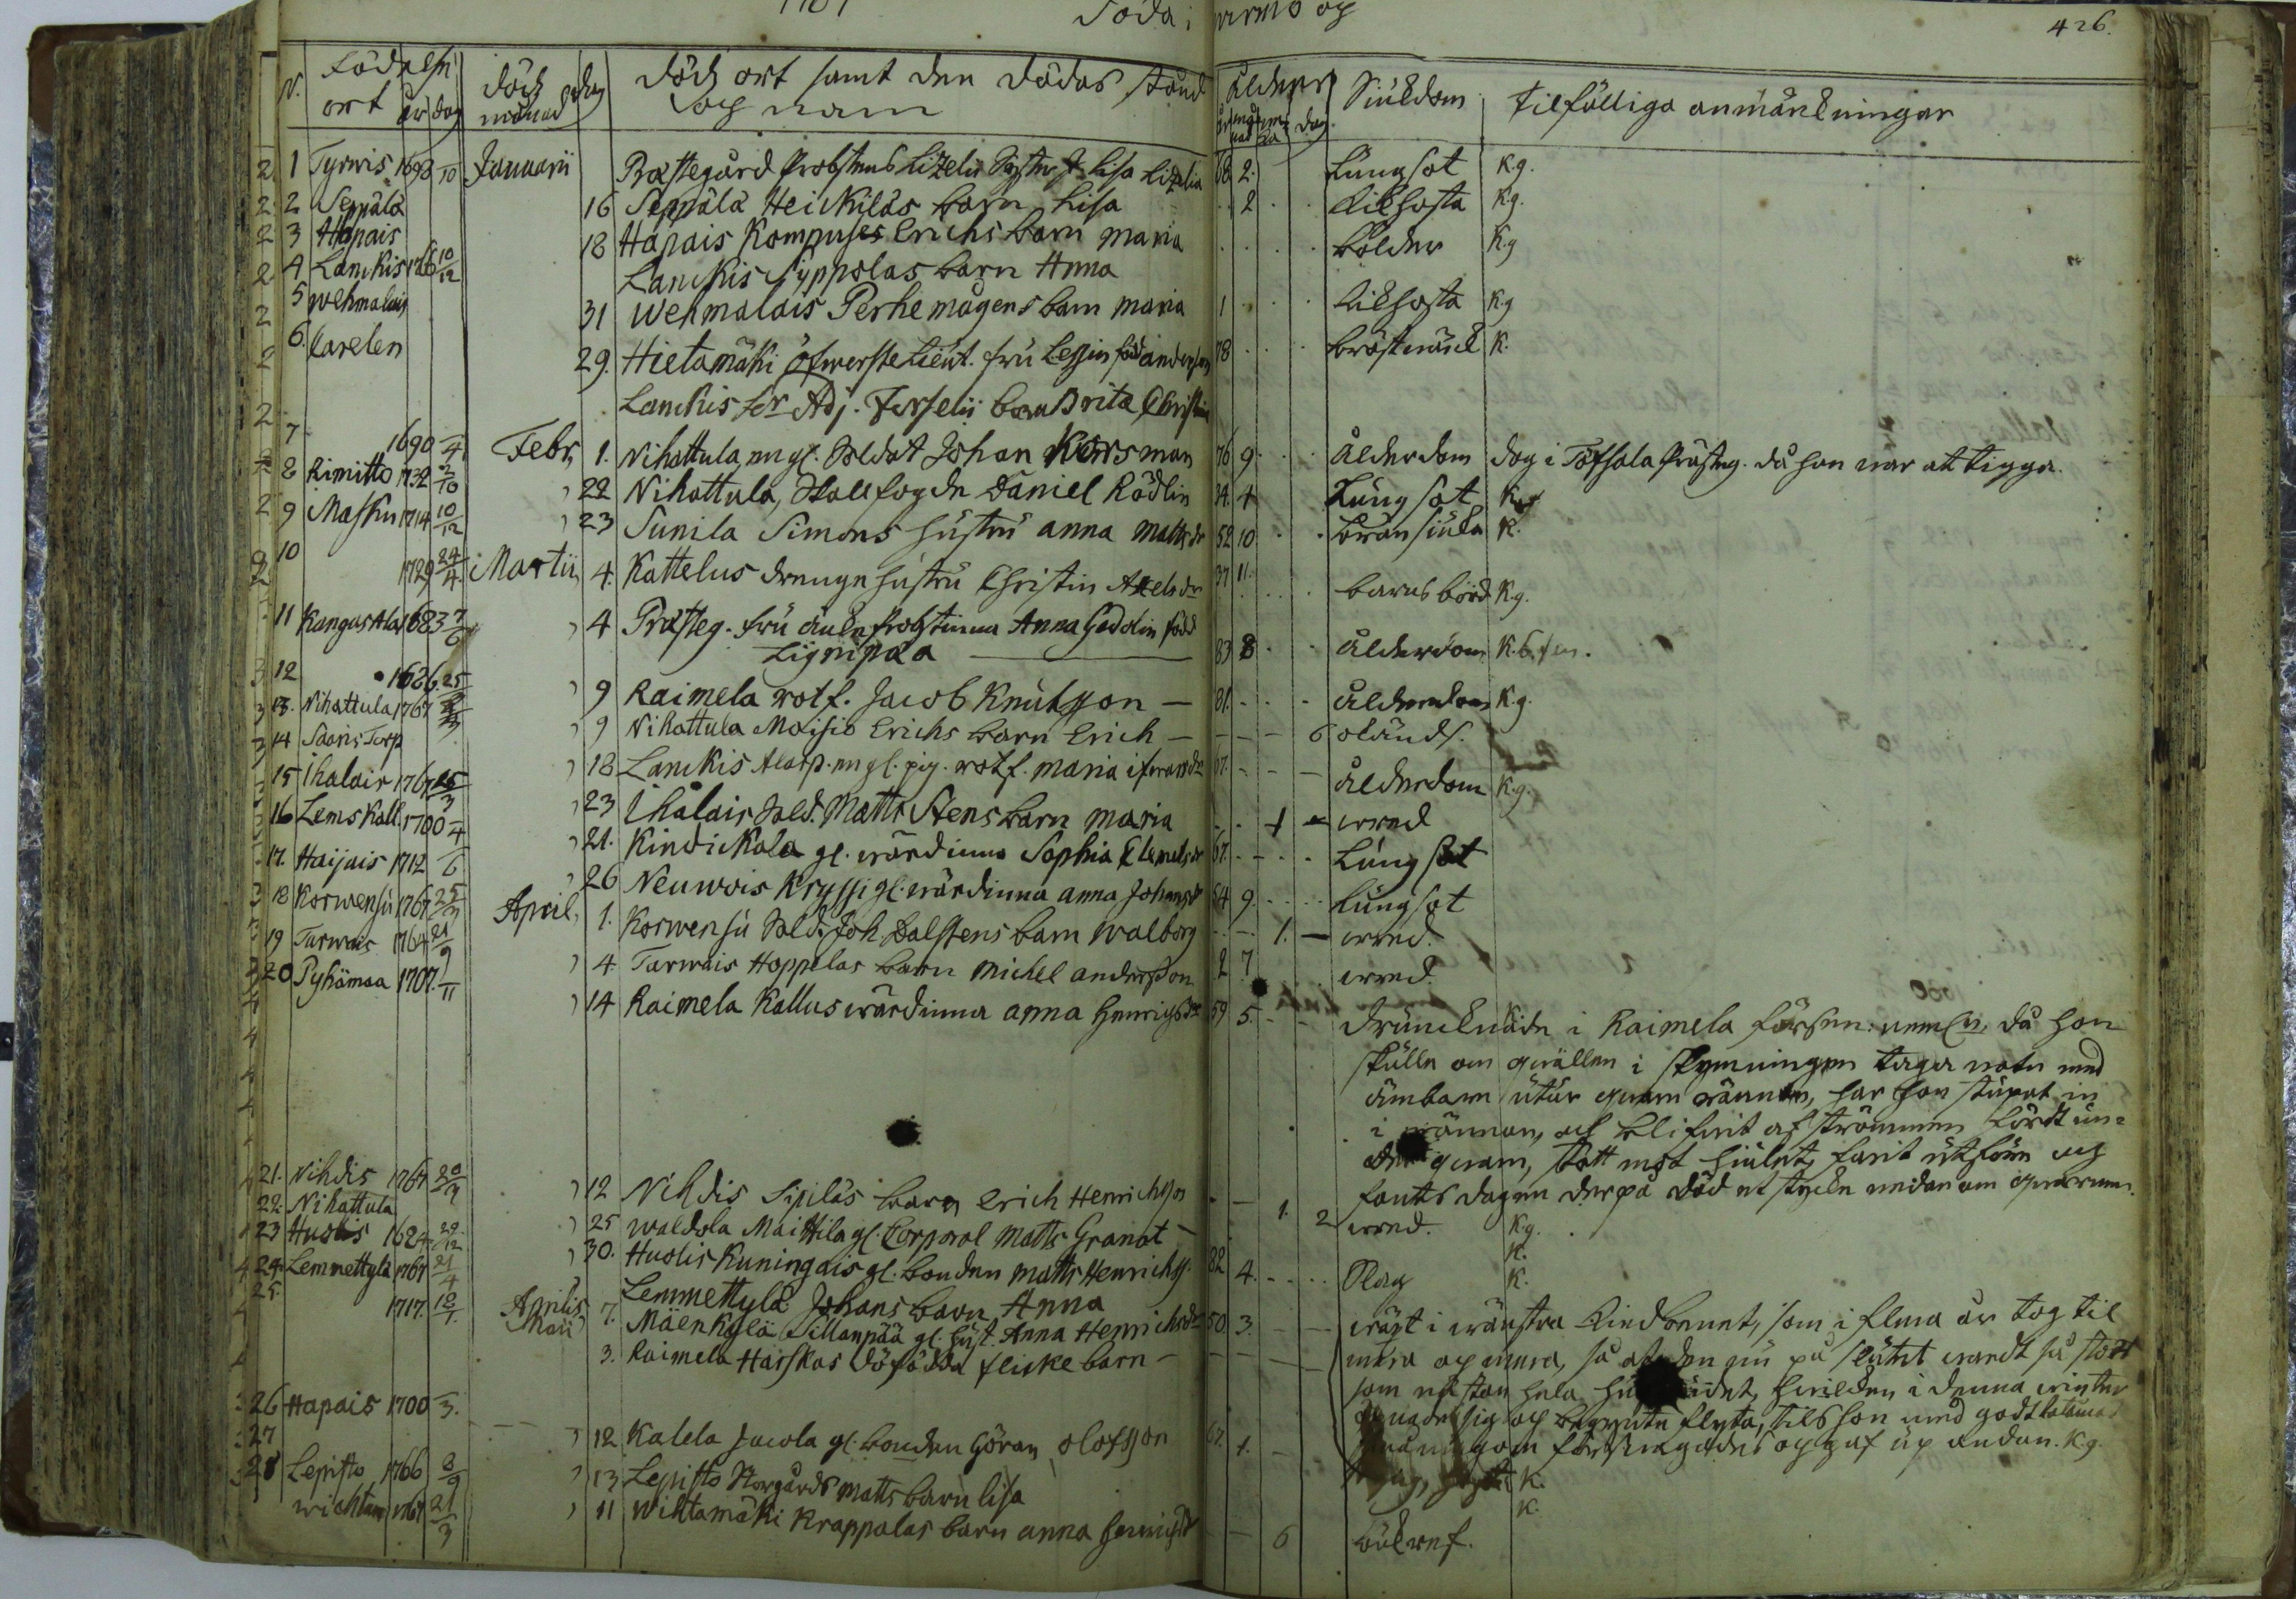 426.
N. Födelse ort år dag död månad dag död ort samt den dödas stånd och namn ålder år månad dag Siukdom tilfälliga anmärkningar
1 Tyrvis 1698 10 Januarii Prästegård Probstens Lizelii Syster J. Lisa Lizelia 68 2. Lungsot k.g.
2 Seppälä 16 Seppälä Heickiläs barn Lisa 2 kikhosta kg.
3 Hapais 18 Hapais Kompuses Erichs barn Maria bölder k.g
4 Lanckis 10/12 Lanckis Syppolas barn Anna
5 Wehmalais 31 Wehmalais Perhemägens barn Maria 1 kikhosta k.g
6. Carelen 29. Hietamäki öfwerste Lieut. fru Lessin född anderson 78 bröstwärk k.
Lanckis hr Adj. Forselii barn Brita Christin
7 1690 4 Febr. 1. Nihattula gl. Soldat Johan Korsman 76 9 ålderdom dog i Töfsala Prästeg. då han war at tigga.
8 Rimitto 1732 2/10 22 Nihattula, Stallfogde Daniel Rödlin 34. 4 Lungsot k.g
9 Masku 1714 10/12 23 Sunila Simons hustru anna Mattsdr 52 10 bränsiuka k.
10 1729 24/4 Martii 4. Kattelus drengs hustru Christin Axelsdr 37 11 barnsbörd k.g.
11 Kangasala 1683 7/6 4 Prästeg. fru änke probstinna Anna Gadolin född
Lignipæa 83 8 ålderdom k.
12 1686 25 9 Raimela rotf. Jacob Knutsson 81. ålderdom k.g.
13. Nihattula 1767 9 Nihattula Moisio Erichs barn Erich 6 oländs.
14 Saaris Torp 18 Lanckis gl. pig. rotf. maria 67. ålderdom k.g.
15 Ihalais 1767 15/3 23 Ihalais Sold. Matts Stens barn maria 1 - wred
16 Lemskall. 1700 4 21. Kindickala gl. wärdinna Sophia Clemetsdr 67. Lungsot
17. Haijais 1712 6 26 Neuwois Kryssi gl. wärdinna anna Johansdr 54 9 Lungsot
18 Korwensu 1767 25/3 April, 1. Korwensu Sold. Joh. Dalstens barn Walborg 1. - wred.
19 Tarwais 1764 21/9 4. Tarwais Hoppelas barn Michel anderson 2 7 wred.
20 Pyhämaa 1707. 11 14 Raimela Kallus wärdinna anna Henrichsdr 59 5. drunknade i Raimela forssen: neml. då hon
skulle om qwällen i skymningen taga watn med
ämbaren utur qwarn rännan, har hon stupat in
i rännan, och blifwit af strömmen fördt un=
der qwarn, stött mot hiulet, farit utföre och
fants dagen derpå död et stycke nedan om qwarnen.
21. Nihdis 1767 20/3 12 Nihdis Sipiläs barn Erich Henrichson 1. 2 wred. k.g.
22. Nihattula 25 Waldola Maittila gl. Corporal Matts Granat k.
23 Huolis 1684 29/12 30. Huolis Kuningais gl. bonden Matts Henrichss. 82 4. Slag k.
24. Lemmettylä 1767 21/4 Lemmettylä Johans barn Anna
25. 1717. 10/1. Aprilis 7. Mäenkylä Sillanpää gl. hust. Anna Henrichsdr 50 3. wäxt i wänstra kindbenet, som i flera år tog til
Maii 3. Raimela Härskas dödfödda flicke barn mera och mera, så at den nu på slutet wardt så stort
som nästan hela hufwudet, hwilken i denna winter
26 Hapais 1700 3. sig och begynte flyta, tils hon med godt
27 12 Kalela Jacola gl. bonden Göran Olofsson 67. 1. och gaf up andan. k.g
28 Lepisto 1766 8/9 13 Lepisto Storgårds Matts barn Lisa k.
Wichtam 1767 21/3 11 Wihtamäki Krappalas barn anna Henrichsdr 6 bukref. k.